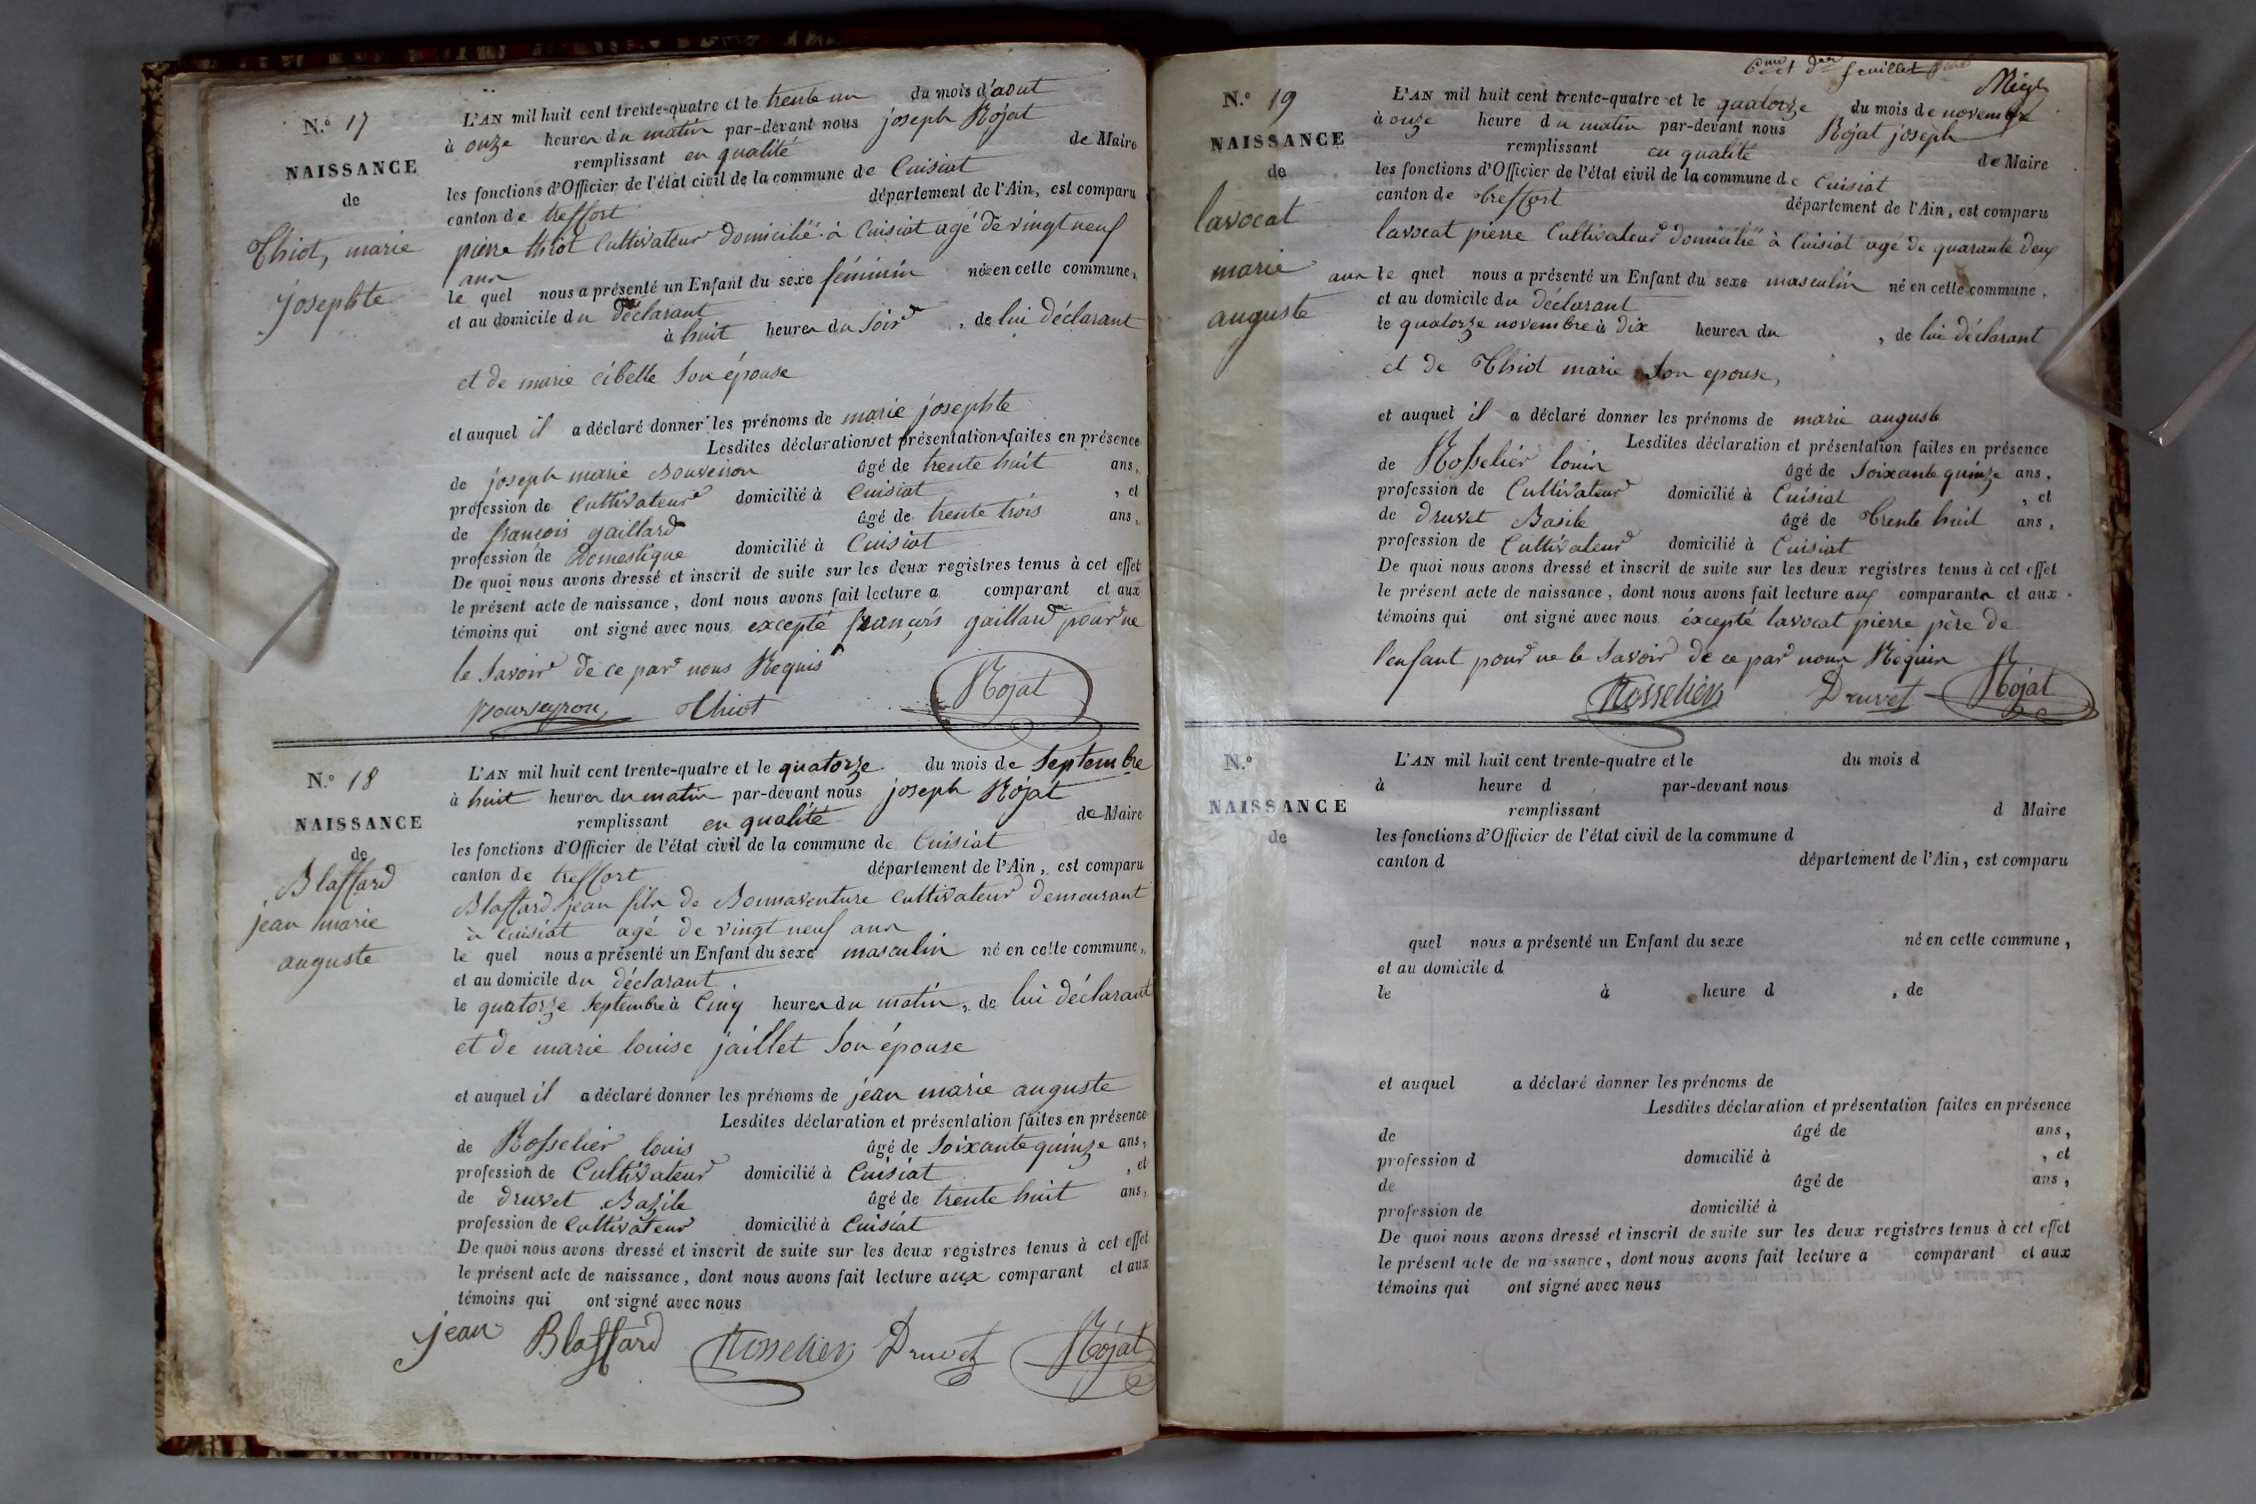 N.º 17
NAISSANCE
de
Thiot, marie
josephte
L'AN mil huit cent trente-quatre et le trente un du mois d'aout
à onze heures du matin par-devant nous joseph Rojat
remplissant en qualité de Maire
les fonctions d'Officier de l'état civil de la commune de Cuisiat
canton de treffort département de l'Ain, est comparu
pierre thiot Cultivateur domicilié à Cuisiat agé de vingt neuf
ans
le quel nous a présenté un Enfant du sexe féminin née en cette commune,
et au domicile du déclarant
à huit heures du soir, de lui déclarant
et de marie cibelle son épouse
et auquel il a déclaré donner les prénoms de marie josephte
Lesdites déclaration et présentation faites en présence
de joseph marie Bouveiron âgé de trente huit ans,
profession de Cultivateur domicilié à Cuisiat, et
de françois gaillard âgé de trente trois ans,
profession de Domestique domicilié à Cuisiat
De quoi nous avons dressé et inscrit de suite sur les deux registres tenus à cet effet
le présent acte de naissance, dont nous avons fait lecture a comparant et aux
témoins qui ont signé avec nous excepté françois gaillard pour ne
le savoir de ce par nous Requis
Bouveyron Thiot Rojat
N.º 18
NAISSANCE
de
Blaffard
jean marie
auguste
L'AN mil huit cent trente-quatre et le quatorze du mois de septembre
à huit heures du matin par-devant nous joseph Rojat
remplissant en qualité de Maire
les fonctions d'Officier de l'état civil de la commune de Cuisiat
canton de treffort département de l'Ain, est comparu
Blaffard jean fils de Bonnaventure Cultivateur demeurant
à Cuisiat agé de vingt neuf ans
le quel nous a présenté un Enfant du sexe masculin né en cette commune,
et au domicile du déclarant
le quatorze septembre à Cinq heures du matin, de lui déclarant
et de marie louise jaillet son épouse
et auquel il a déclaré donner les prénoms de jean marie auguste
Lesdites déclaration et présentation faites en présence
de Rosselier louis âgé de soixante quinze ans,
profession de Cultivateur domicilié à Cuisiat, et
de druvet Bazile âgé de trente huit ans,
profession de Cultivateur domicilié à Cuisiat
De quoi nous avons dressé et inscrit de suite sur les deux registres tenus à cet effet
le présent acte de naissance, dont nous avons fait lecture aux comparant et aux
témoins qui ont signé avec nous
jean Blaffard Rosselier Druvet Rojat
6me et der feuillet
N.º 19
NAISSANCE
de
lavocat
marie
auguste
L'AN mil huit cent trente-quatre et le quatorze du mois de novembre
à onze heure du matin par-devant nous Rojat joseph
remplissant en qualité de Maire
les fonctions d'Officier de l'état civil de la commune de Cuisiat
canton de treffort département de l'Ain, est comparu
lavocat pierre Cultivateur domicilié à Cuisiat agé de quarante deux
ans le quel nous a présenté un Enfant du sexe masculin né en cette commune,
et au domicile du déclarant
le quatorze novembre à dix heures du, de lui déclarant
et de Thiot marie son epouse,
et auquel il a déclaré donner les prénoms de marie auguste
Lesdites déclaration et présentation faites en présence
de Rosselier louis âgé de soixante quinze ans,
profession de Cultivateur domicilié à Cuisiat, et
de druvet Basile âgé de trente huit ans,
profession de Cultivateur domicilié à Cuisiat
De quoi nous avons dressé et inscrit de suite sur les deux registres tenus à cet effet
le présent acte de naissance, dont nous avons fait lecture aux comparants et aux
témoins qui ont signé avec nous excepté lavocat pierre père de
l'enfant pour ne le savoir de ce par nous Requis
Rosselier Druvet Rojat
N.º
NAISSANCE
de
L'AN mil huit cent trente-quatre et le du mois d
à heure d par-devant nous
remplissant d Maire
les fonctions d'Officier de l'état civil de la commune d
canton d département de l'Ain, est comparu
quel nous a présenté un Enfant du sexe né en cette commune,
et au domicile d
le à heure d, de
et auquel a déclaré donner les prénoms de
Lesdites déclaration et présentation faites en présence
de âgé de ans,
profession d domicilié à, et
de âgé de ans,
profession de domicilié à
De quoi nous avons dressé et inscrit de suite sur les deux registres tenus à cet effet
le présent acte de naissance, dont nous avons fait lecture a comparant et aux
témoins qui ont signé avec nous